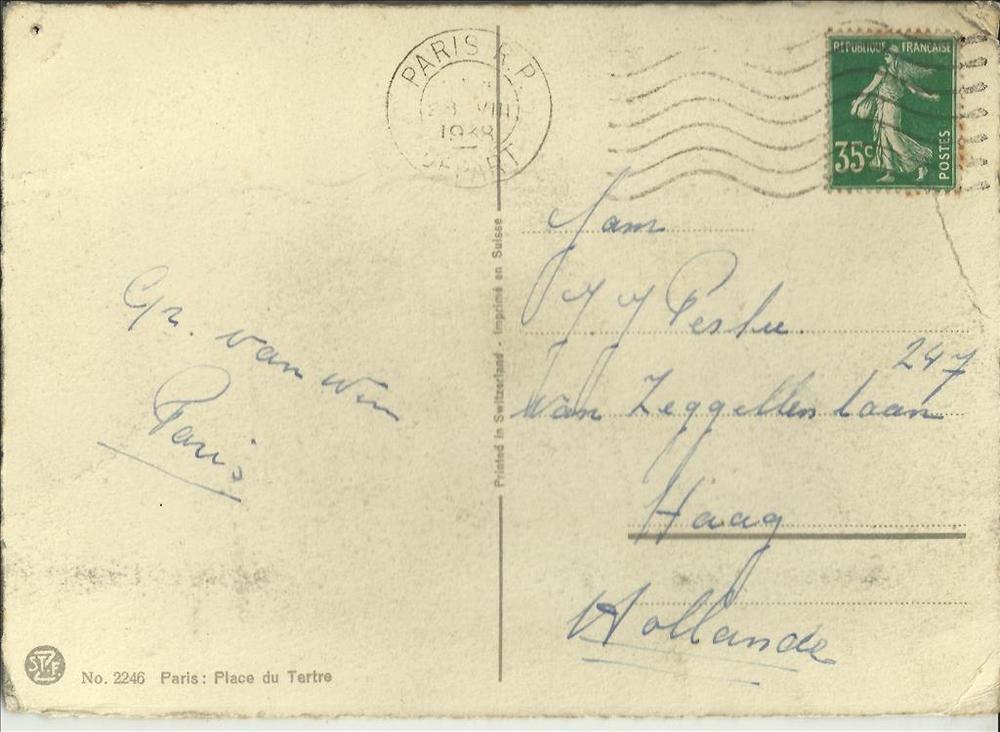 PARIS R.P.
28 VIII
1938
DEPART
REPUBLIQUE FRANÇAISE
35c
POSTES
Fam
J. J. Peslu.
247
van Zeggellen laan
Haag
Hollande
Gr. van Wim
Paris
Printed in Switzerland - Imprimé en Suisse
STZF.
No. 2246 Paris: Place du Tertre